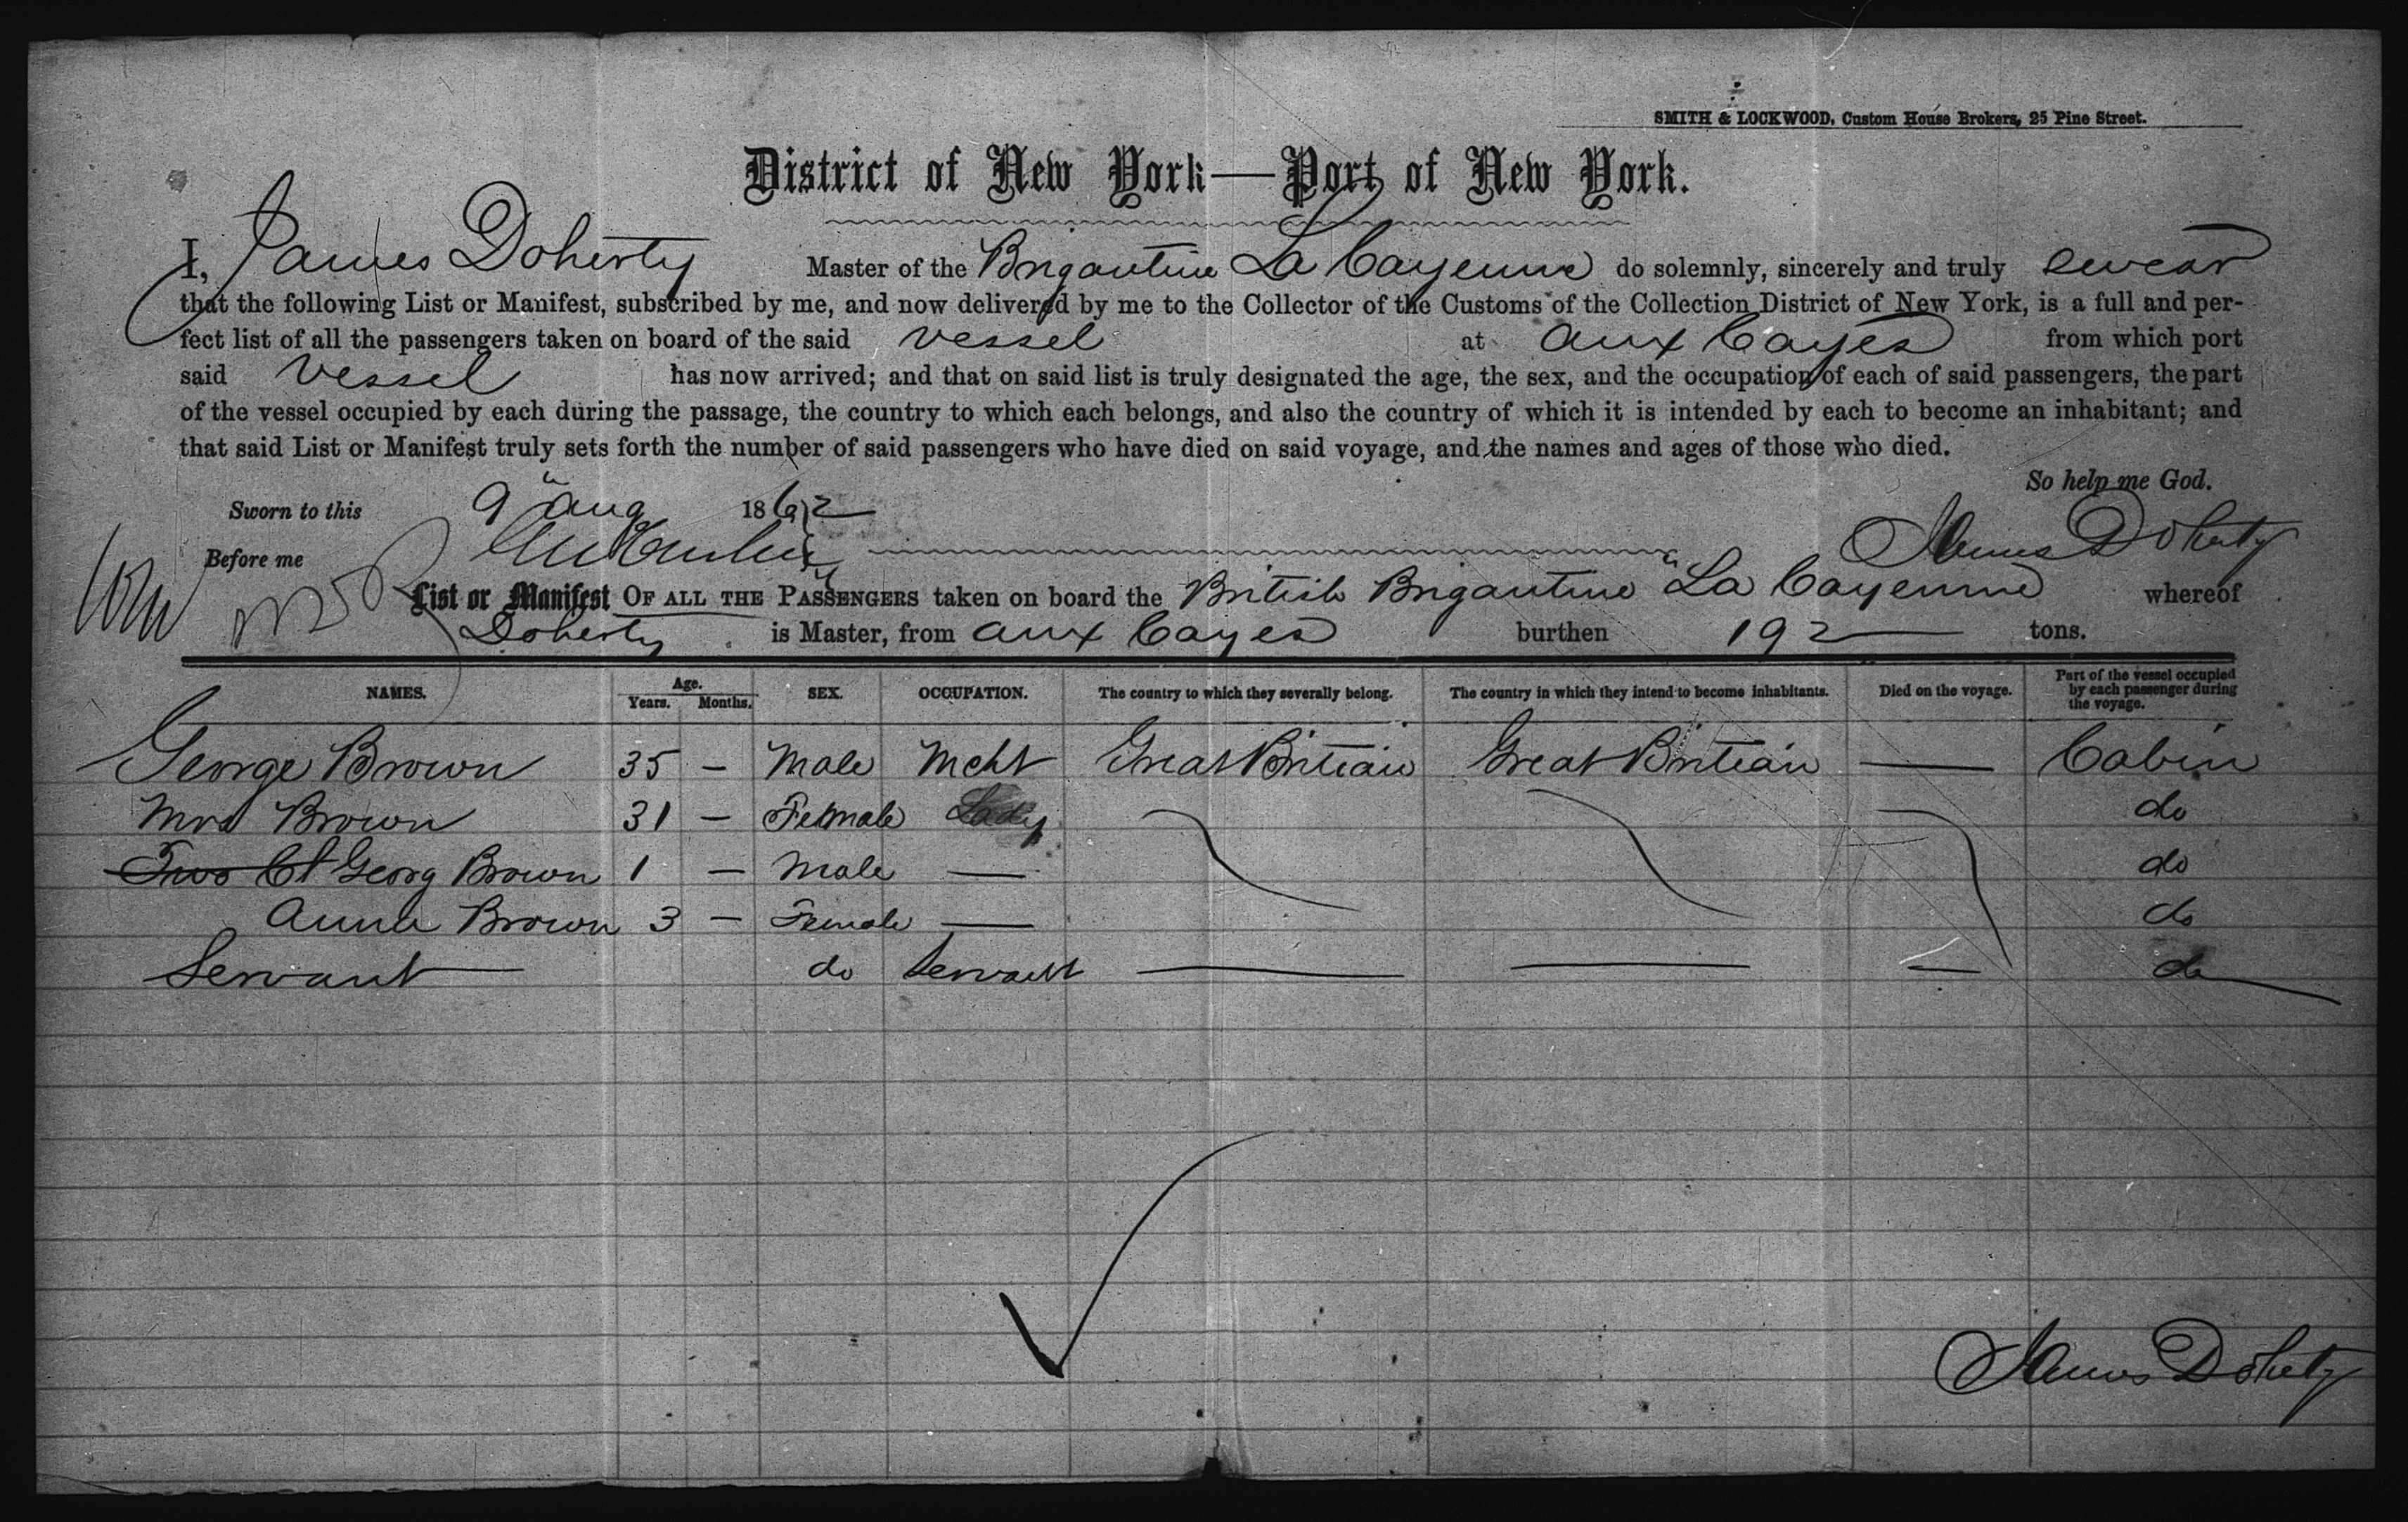 SMITH & LOCKWOOD, Custom House Brokers, 25 Pine Street.
District of New York—Port of New York.
I, James Doherty Master of the Brigantine La Cayenne do solemnly, sincerely and truly swear
that the following List or Manifest, subscribed by me, and now delivered by me to the Collector of the Customs of the Collection District of New York, is a full and per-
fect list of all the passengers taken on board of the said vessel at Aux Cayes from which port
said vessel has now arrived; and that on said list is truly designated the age, the sex, and the occupation of each of said passengers, the part
of the vessel occupied by each during the passage, the country to which each belongs, and also the country of which it is intended by each to become an inhabitant; and
that said List or Manifest truly sets forth the number of said passengers who have died on said voyage, and the names and ages of those who died.
So help me God.
Sworn to this 9" Aug 1862
Before me James Doherty
List or Manifest OF ALL THE PASSENGERS taken on board the British Brigantine "La Cayenne whereof
Doherty is Master, from Aux Cayes burthen 192 tons.
NAMES. Age. Years. Months. SEX. OCCUPATION. The country to which they severally belong. The country in which they intend to become inhabitants. Died on the voyage. Part of the vessel occupied by each passenger during the voyage.
George Brown 35 — Male Mcht Great Britian Great Britian — Cabin
Mrs Brown 31 — Female Lady do
Two Ch Georg Brown 1 — Male — do
Annie Brown 3 — Female — do
Servant do Servant — — — do
James Doherty